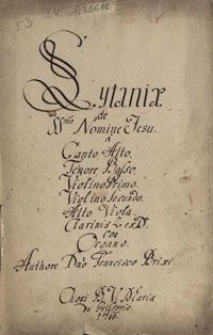 Lytaniæ
de
SSmo Nomine Jesu.
a
Canto Alto.
Tenore Basso.
Violino Primo.
Violino Secundo.
Alto Viola
Clarinis 2 ex D.
Con
Organo.
Authore Dno Francisco Brixi.
Chori B V Mariæ
de